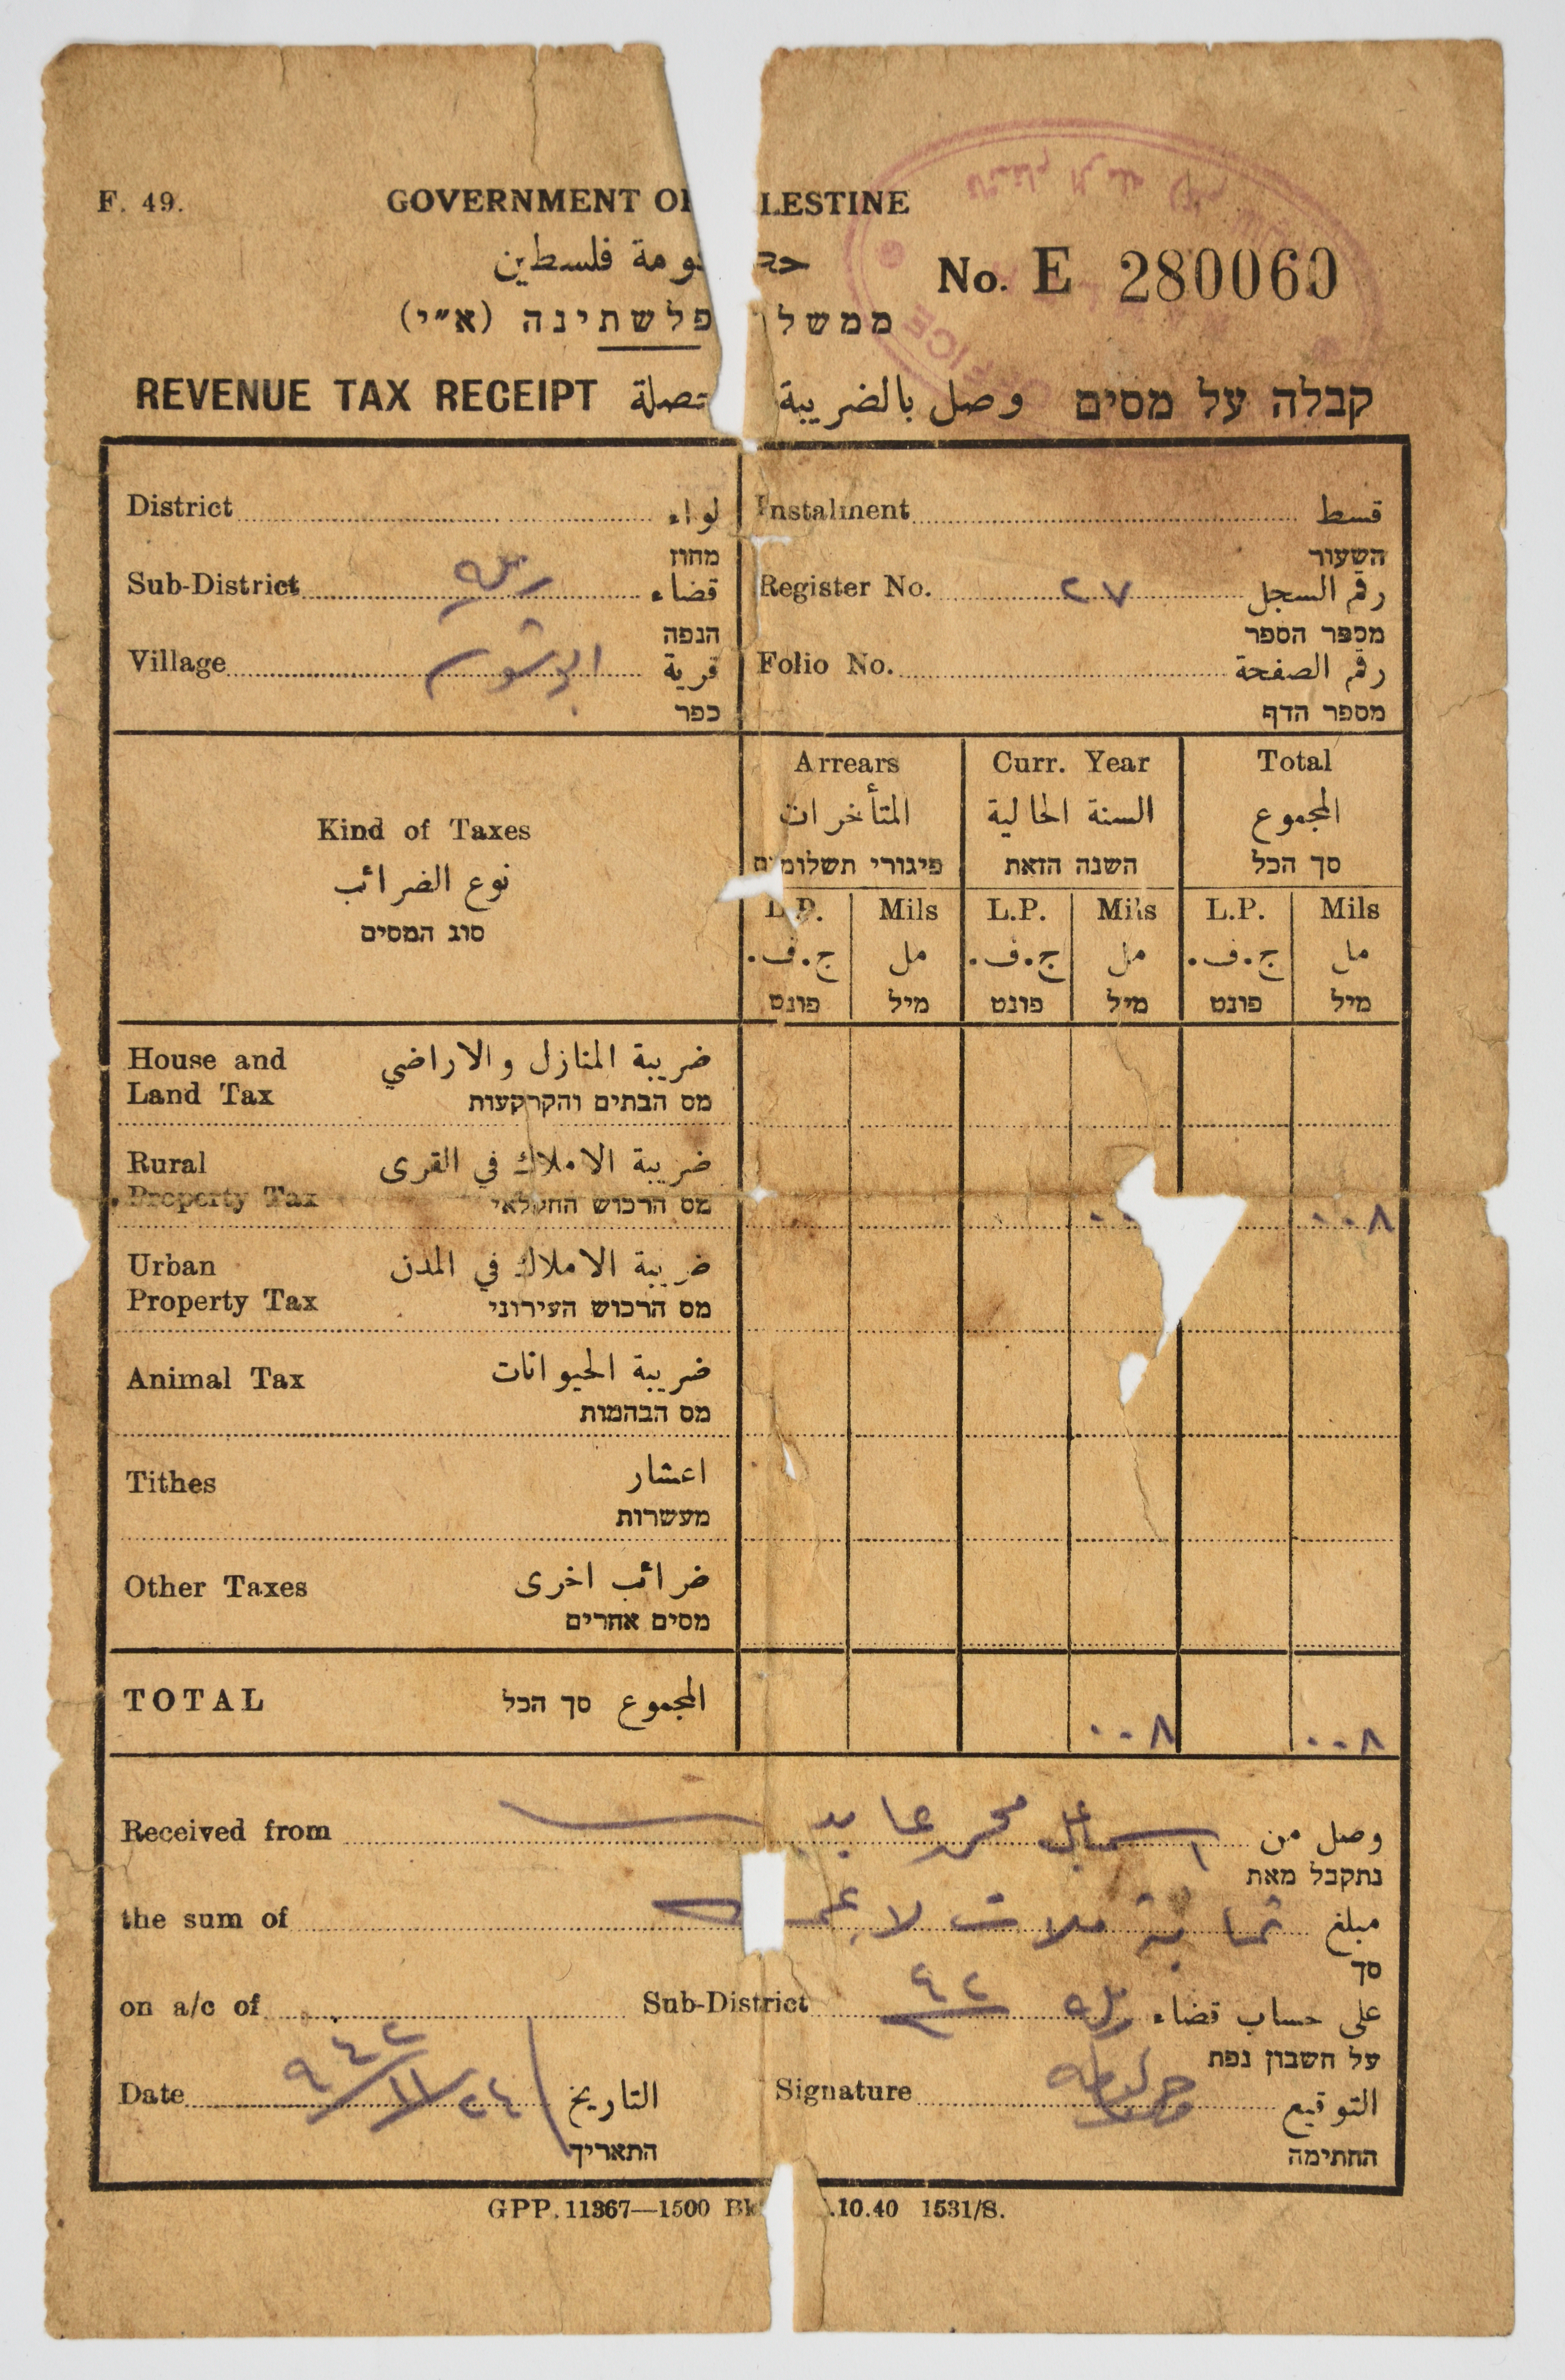 F. 49.
GOVERNMENT OF PALESTINE
حكومة فلسطين
No. E 280060
ממשלת פלשתינה (א״י)
OFFICE
REVENUE TAX RECEIPT وصل بالضريبة قبלה על מסים
District لواء
מחוז
Instalment قسط
השעור
Sub-District رملة قضاء
הנפה
Register No. ٢٧ رقم السجل
מספר הספר
Village قرية
כפר
Folio No. رقم الصفحة
מספר הדף
Kind of Taxes
نوع الضرائب
סוג המסים
Arrears Curr. Year Total
المتأخرات السنة الحالية المجموع
פיגורי תשלומים השנה הזאת סך הכל
L.P. Mils L.P. Mils L.P. Mils
ج.ف. مل ج.ف. مل ج.ف. مل
פונט מיל פונט מיל פונט מיל
House and Land Tax ضريبة المنازل والاراضي
מס הבתים והקרקעות
Rural Property Tax ضريبة الاملاك في القرى
מס הרכוש החקלאי
٠٠٨
Urban Property Tax ضريبة الاملاك في المدن
מס הרכוש העירוני
Animal Tax ضريبة الحيوانات
מס הבהמות
Tithes اعشار
מעשרות
Other Taxes ضرائب اخرى
מסים אחרים
TOTAL المجموع סך הכל ٠٠٨ ٠٠٨
Received from اسماعيل محمد عابد وصل من
נתקבל מאת
the sum of ثمانية ملات لا غير مبلغ
סך
on a/c of Sub-District ٤٢ رملة على حساب قضاء
על חשבון נפת
Date ٢٤/١١/٩٤٢ التاريخ
התאריך
Signature التوقيع
החתימה
GPP. 11367—1500 Bk .10.40 1531/S.